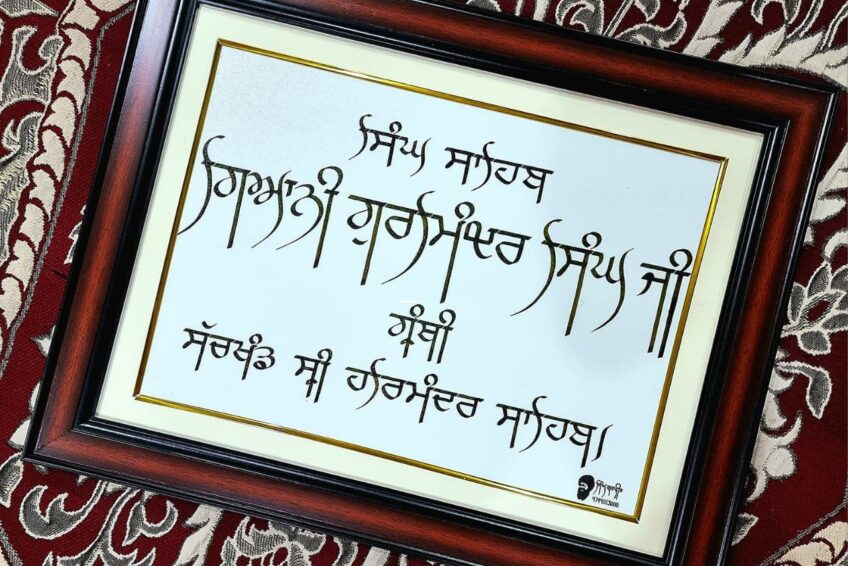 ਸਿੰਘ ਸਾਹਿਬ
ਗਿਆਨੀ ਗੁਰਮਿੰਦਰ ਸਿੰਘ ਜੀ
ਗ੍ਰੰਥੀ
ਸੱਚਖੰਡ ਸ੍ਰੀ ਹਰਿਮੰਦਰ ਸਾਹਿਬ।